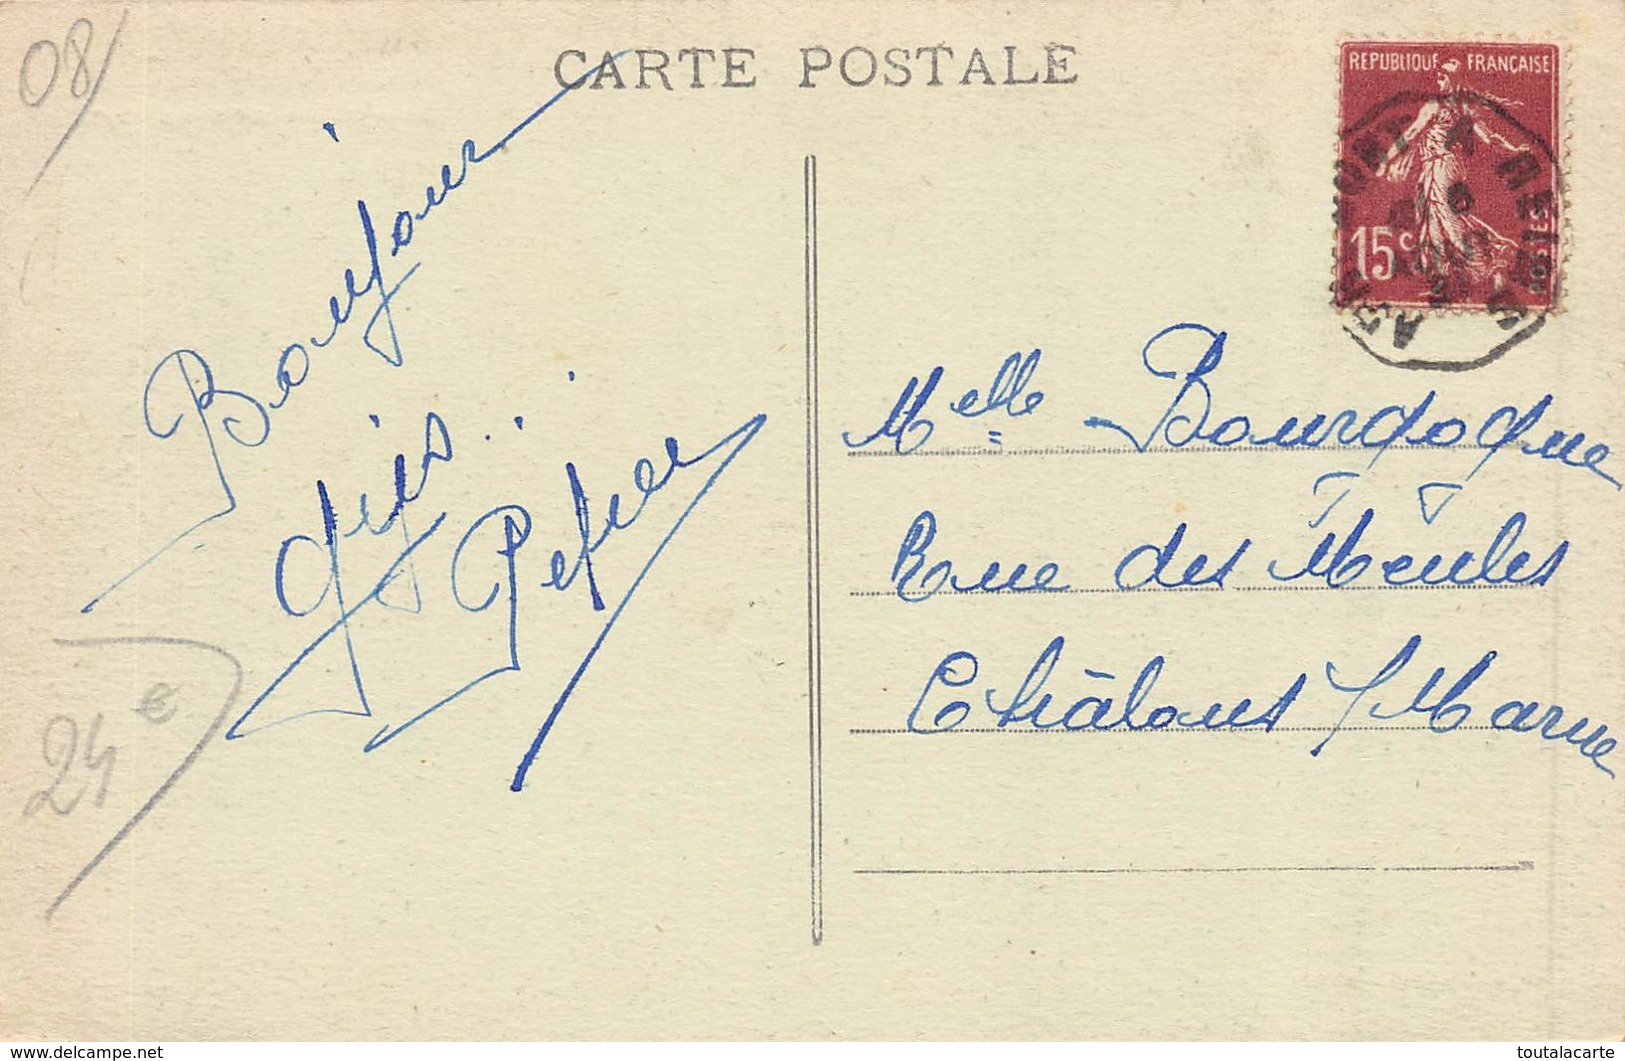 08
CARTE POSTALE
REPUBLIQUE FRANÇAISE
15c
POSTES
A REIMS
AOUT
Bonjour
Melle Bourgogne
Rue des Meules
Châlons s/Marne
24 €
www.delcampe.net
toutalacarte